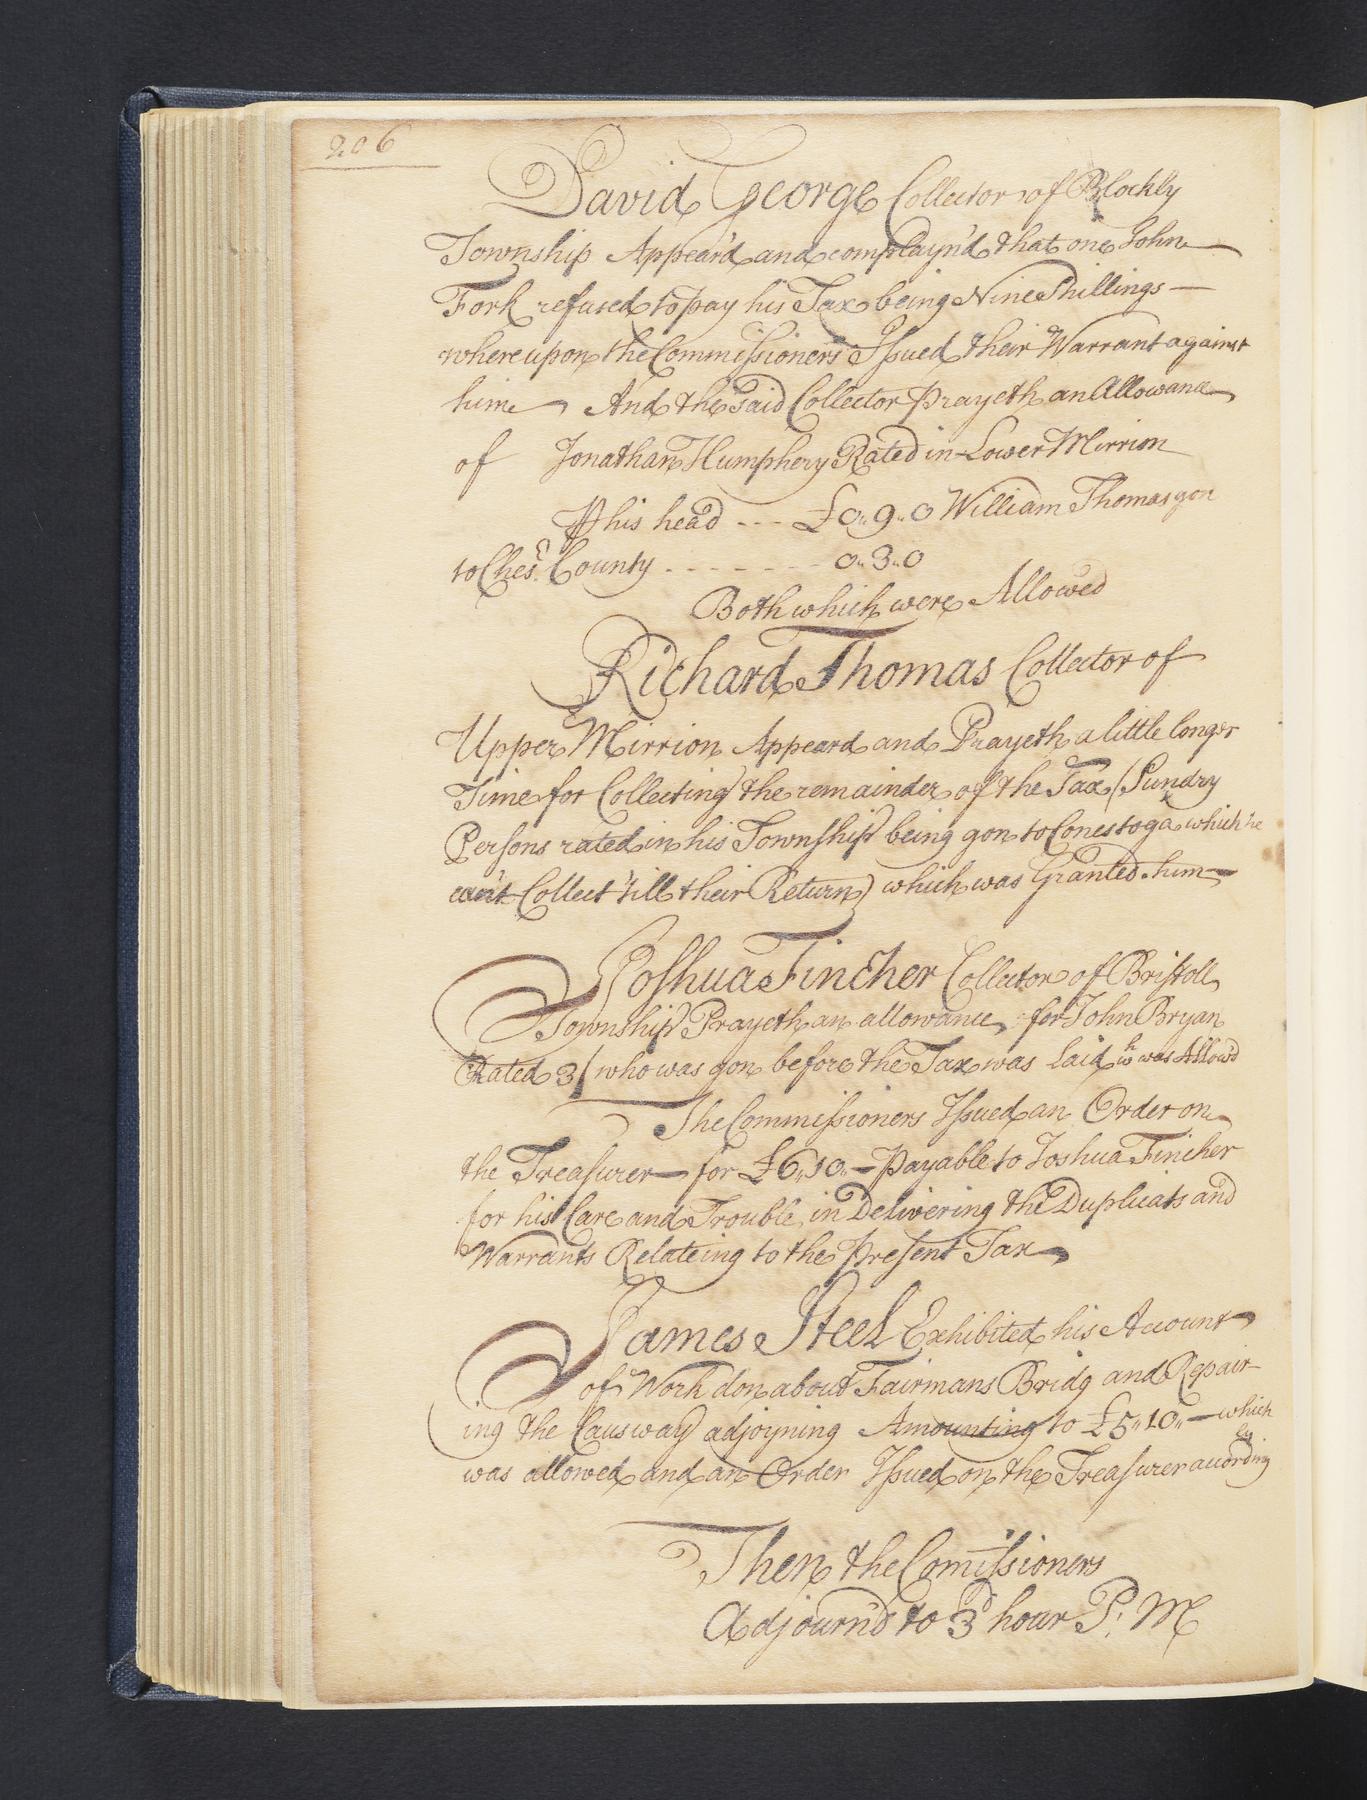 206
David George Collector of Blockly
Township Appear'd and complayn'd that one John
Fork refused to pay his Tax being Nine Shillings
whereupon the Commissioners Issued their Warrant against
him And the said Collector Prayeth an Allowance
of Jonathan Humphery Rated in Lower Mirrion
P his head --- £0..9..0 William Thomas gon
to Ches.r County - - - - - - - 0..3..0
Both which were Allowed
Richard Thomas Collector of
Upper Mirrion Appeard and Prayeth a little longer
Time for Collecting the remainder of the Tax (Sundry
Persons rated in his Township being gon to Conestoga which he
can't Collect 'till their Return) which was Granted him
Joshua Fincher Collector of Bristoll
Township Prayeth an allowance for John Bryan
Rated 3/ who was gon before the Tax was laid wh was Allow'd
The Commissioners Issued an Order on
the Treasurer for £6..10..- Payable to Joshua Fincher
for his Care and Trouble in Delivering the Duplicats and
Warrants Relateing to the Present Tax
James Steel Exhibited his Account
of Work don about Fairmans Bridg and Repair-
ing the Causway adjoyning Amounting to £5..10..- which
was allowed and an Order Issued on the Treasurer according
ly
Then the Comissioners
Adjourn'd to 3d hour P. M